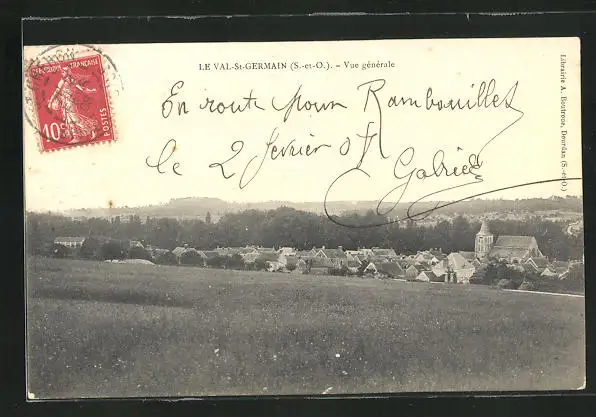 LE VAL-St-GERMAIN (S.-et-O.). - Vue générale
RÉPUBLIQUE FRANÇAISE
POSTES
10c
En route pour Rambouillet
le 2 février 07
Gabriel
Librairie A. Boutroue, Dourdan (S.-et-O.)